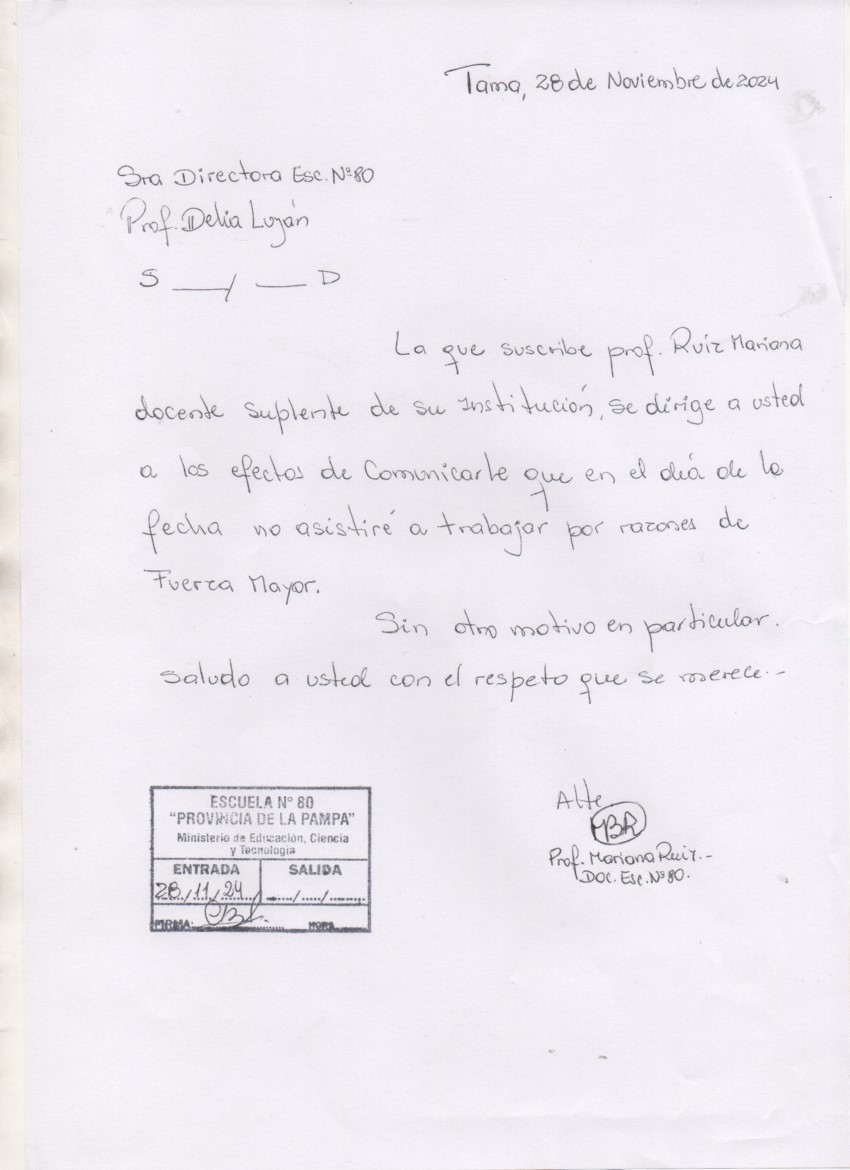 Tama, 28 de Noviembre de 2024
Sra Directora Esc. Nº80
Prof. Delia Luján
S ___/ ___ D
La que suscribe prof. Ruiz Mariana
docente suplente de su Institución, se dirige a usted
a los efectos de Comunicarle que en el día de la
fecha no asistiré a trabajar por razones de
Fuerza Mayor.
Sin otro motivo en particular.
saludo a usted con el respeto que se merece.-
Atte
MBR
Prof. Mariana Ruiz.-
Doc. Esc. Nº80.
ESCUELA Nº 80
"PROVINCIA DE LA PAMPA"
Ministerio de Educación, Ciencia
y Tecnología
ENTRADA SALIDA
28/11/24 ...../...../.....
FIRMA: HORA